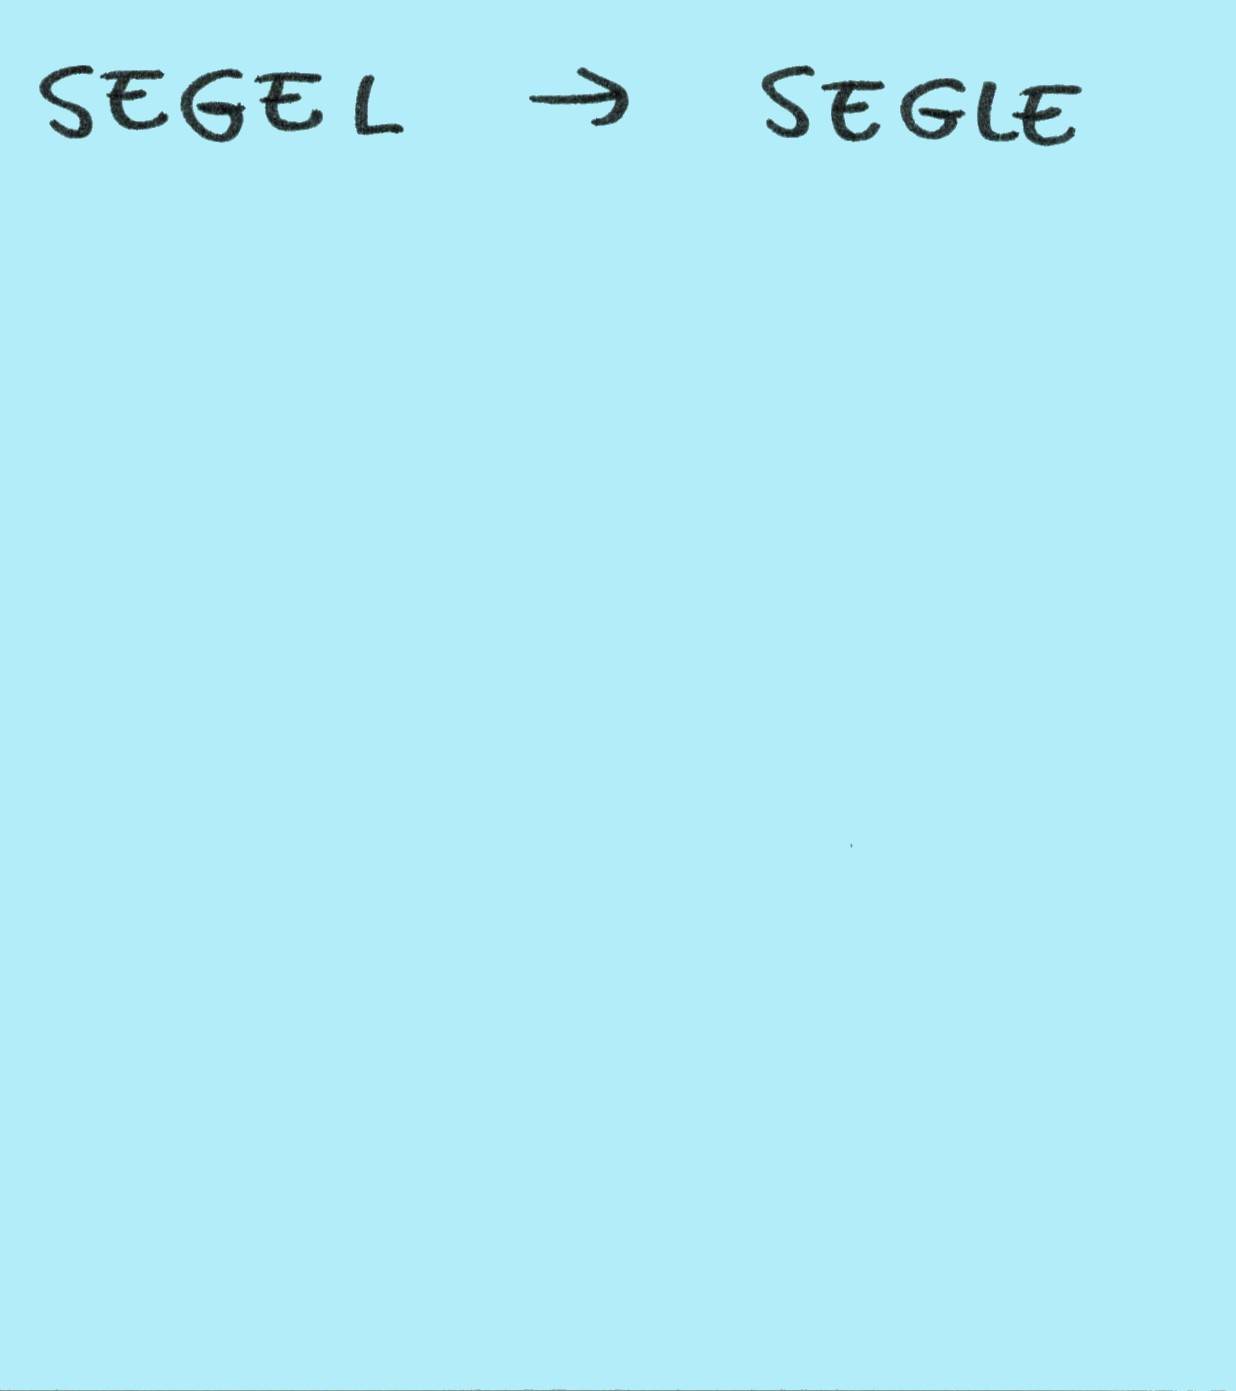 SEGEL → SEGLE